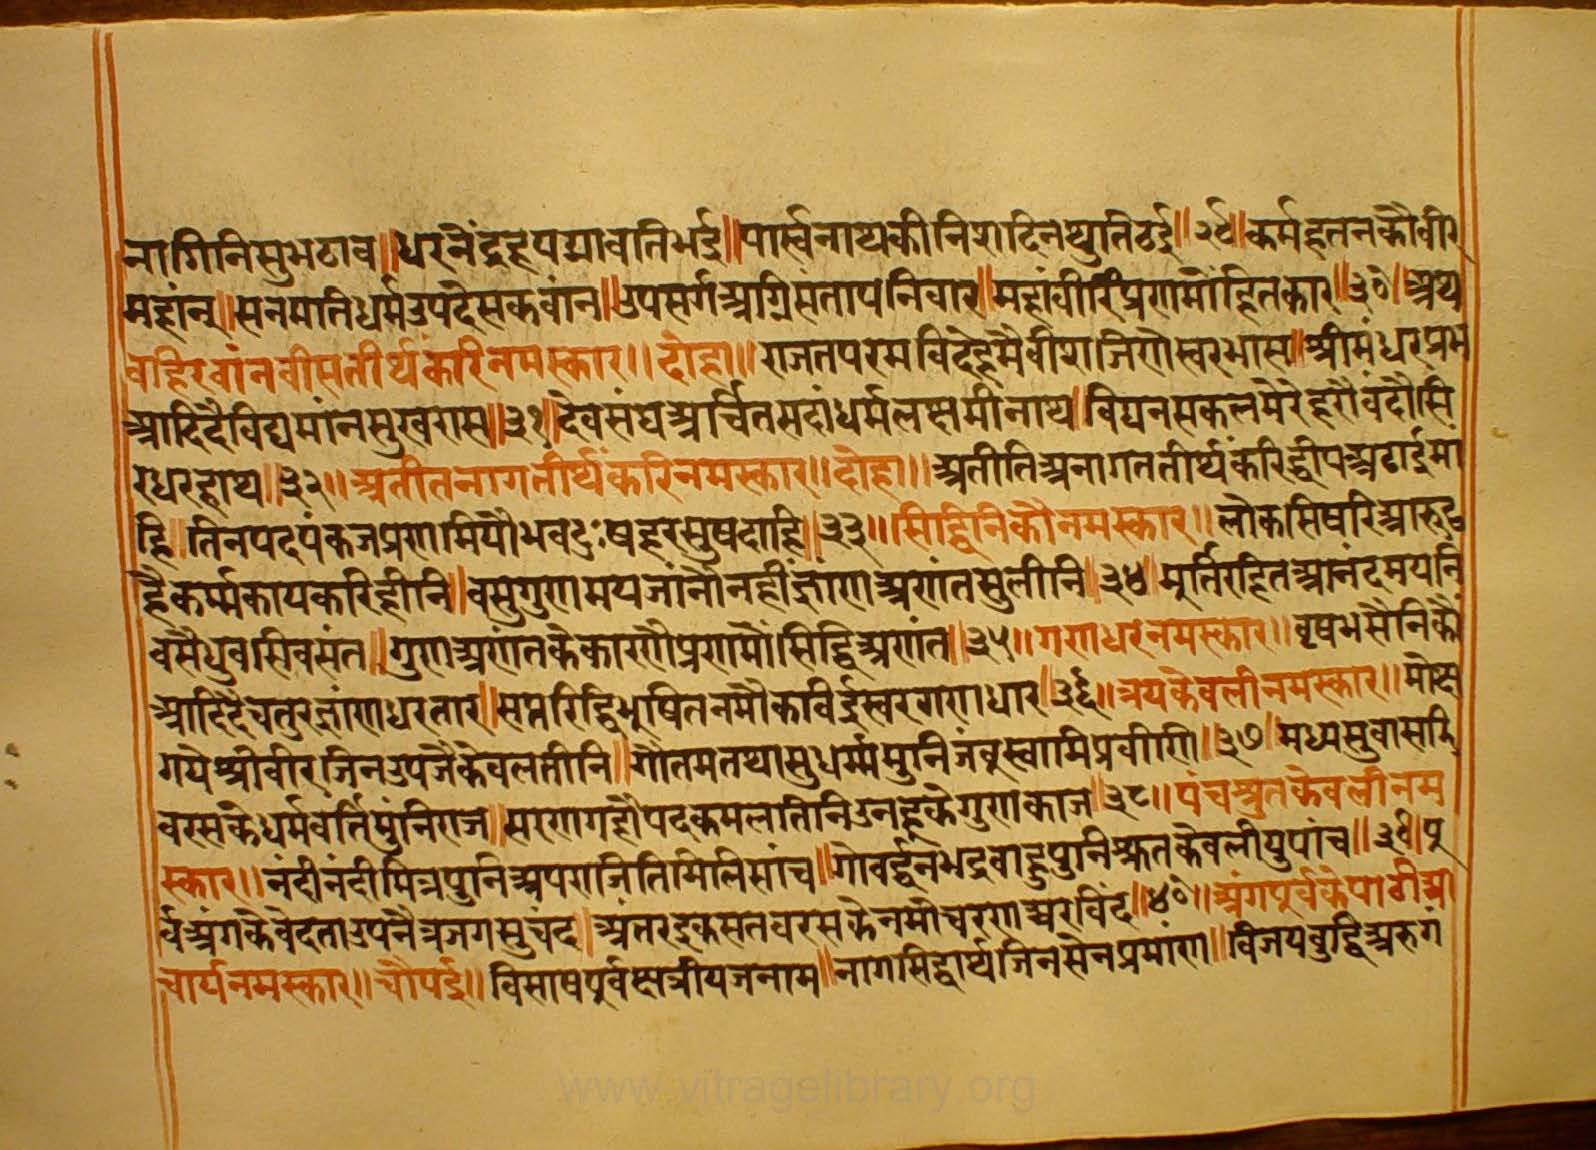 नागिनिसुभठाव॥धरनैंद्रहपद्मावतिभई॥पार्स्वनाथकीनिशदिनथुतिठई॥२९॥कर्महतनकौवीर
महांन॥सनमातिधर्मउपदेसकवांन॥उपसर्गअग्निसंतापनिवार॥महांवीरिप्रणमौंहितकार॥३०॥अथ
वहिरवांनवीसतीर्थंकरिनमस्कार॥दोहा॥राजतपरमविदेहमैवीशजिणेस्वरभास॥श्रीमंधरप्रभ
आदिदैविद्यमांनसुखरास॥३१॥देवसंघअर्चितसदांधर्मलक्षमीनाथ॥विघनसकलमेरेहरौवंदौसि
रधरहाथ॥३२॥अतीतनागतीर्थंकरिनमस्कार॥दोहा॥अतीतिअनागततीर्थंकरिद्वीपअढाईमां
हि॥तिनपदपंकजप्रणमियौभवदुःषहरसुषदाहि॥३३॥सिद्धिनिकौनमस्कार॥लोकसिषरिआरूढ
हैकर्म्मकायकरिहीनि॥वसुगुणमयजांनौनहींज्ञांणअणंतसुलीनि॥३४॥मूर्तिरहितआनंदमयनि
वसैधुवसिवसंत॥गुणअणंतकेकारणैप्रणमौंसिद्धिअणंत॥३५॥गणधरनमस्कार॥वृषभसैनिकौं
आदिदेचतुरज्ञांणधरतार॥सप्तरिद्धिभूषितनमौकविईस्वरगणधार॥३६॥त्रयकेवलीनमस्कार॥मोक्ष
गयेश्रीवीरजिनउपजैकेवलतीनि॥गौतमतथासुधर्म्ममुनिजंवुस्वामिप्रवीणि॥३७॥मध्यसुवासठि
वरसकेधर्मवर्तिमुंनिराज॥सरणगहौपदकमलातिनिउनहूकेगुणकाज॥३८॥पंचश्रुतकेवलीनम
स्कार॥नंदीनंदीमित्रपुनिअपराजितिमिलिसांच॥गोवर्द्धनभद्रवाहुपुनिश्रुतकेवलीयुपांच॥३९॥पू
र्वअंगकेवेदताउपनैत्रजगसुचंद॥अंतरइकसतवरसकेनमौचरणअरविंद॥४०॥अंगपूर्वकेपाठीआ
चार्यनमस्कार॥चौपई॥विसाषपूर्वक्षत्रीयजनाम॥नागसिद्धार्थजिनसेनप्रमांण॥विजयवुद्धिअरुगं
www.vitragelibrary.org